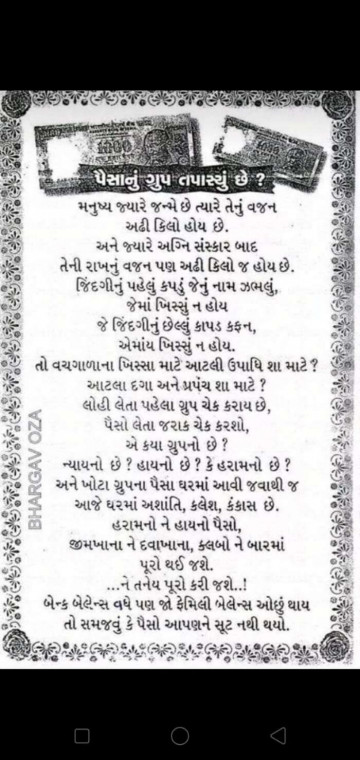 પૈસાનું ગ્રુપ તપાસ્યું છે ?
મનુષ્ય જ્યારે જન્મે છે ત્યારે તેનું વજન
અઢી કિલો હોય છે.
અને જ્યારે અગ્નિ સંસ્કાર બાદ
તેની રાખનું વજન પણ અઢી કિલો જ હોય છે.
જિંદગીનું પહેલું કપડું જેનું નામ ઝભલું,
જેમાં ખિસ્સું ન હોય
જે જિંદગીનું છેલ્લું કાપડ કફન,
એમાંય ખિસ્સું ન હોય.
તો વચગાળાના ખિસ્સા માટે આટલી ઉપાધિ શા માટે ?
આટલા દગા અને પ્રપંચ શા માટે ?
લોહી લેતા પહેલા ગ્રુપ ચેક કરાય છે,
પૈસો લેતા જરાક ચેક કરશો,
એ કયા ગ્રુપનો છે ?
ન્યાયનો છે ? હાયનો છે ? કે હરામનો છે ?
અને ખોટા ગ્રુપના પૈસા ઘરમાં આવી જવાથી જ
આજે ઘરમાં અશાંતિ, કલેશ, કંકાસ છે.
હરામનો ને હાયનો પૈસો,
જીમખાના ને દવાખાના, ક્લબો ને બારમાં
પૂરો થઈ જશે.
...ને તનેય પૂરો કરી જશે..!
બેન્ક બેલેન્સ વધે પણ જો ફેમિલી બેલેન્સ ઓછું થાય
તો સમજવું કે પૈસો આપણને સૂટ નથી થયો.
BHARGAV OZA
1000